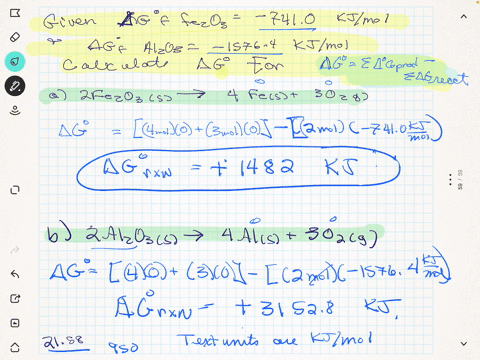 Given ΔG°f Fe2O3 = -741.0 KJ/mol
ΔG°f Al2O3 = -1576.4 KJ/mol
Calculate ΔG° For ΔG° = ΣΔG°prod -
ΣΔG react
a) 2Fe2O3(s) → 4 Fe(s) + 3O2(g)
ΔG° = [(4mol)(0) + (3mol)(0)] - [(2mol)(-741.0 KJ/mol)
ΔG°rxn = + 1482 KJ
b) 2Al2O3(s) → 4Al(s) + 3O2(g)
ΔG° = [(4)(0) + (3)(0)] - [(2mol)(-1576.4 KJ/mol)
ΔG°rxn = + 3152.8 KJ,
21.58 950 Text units are KJ/mol